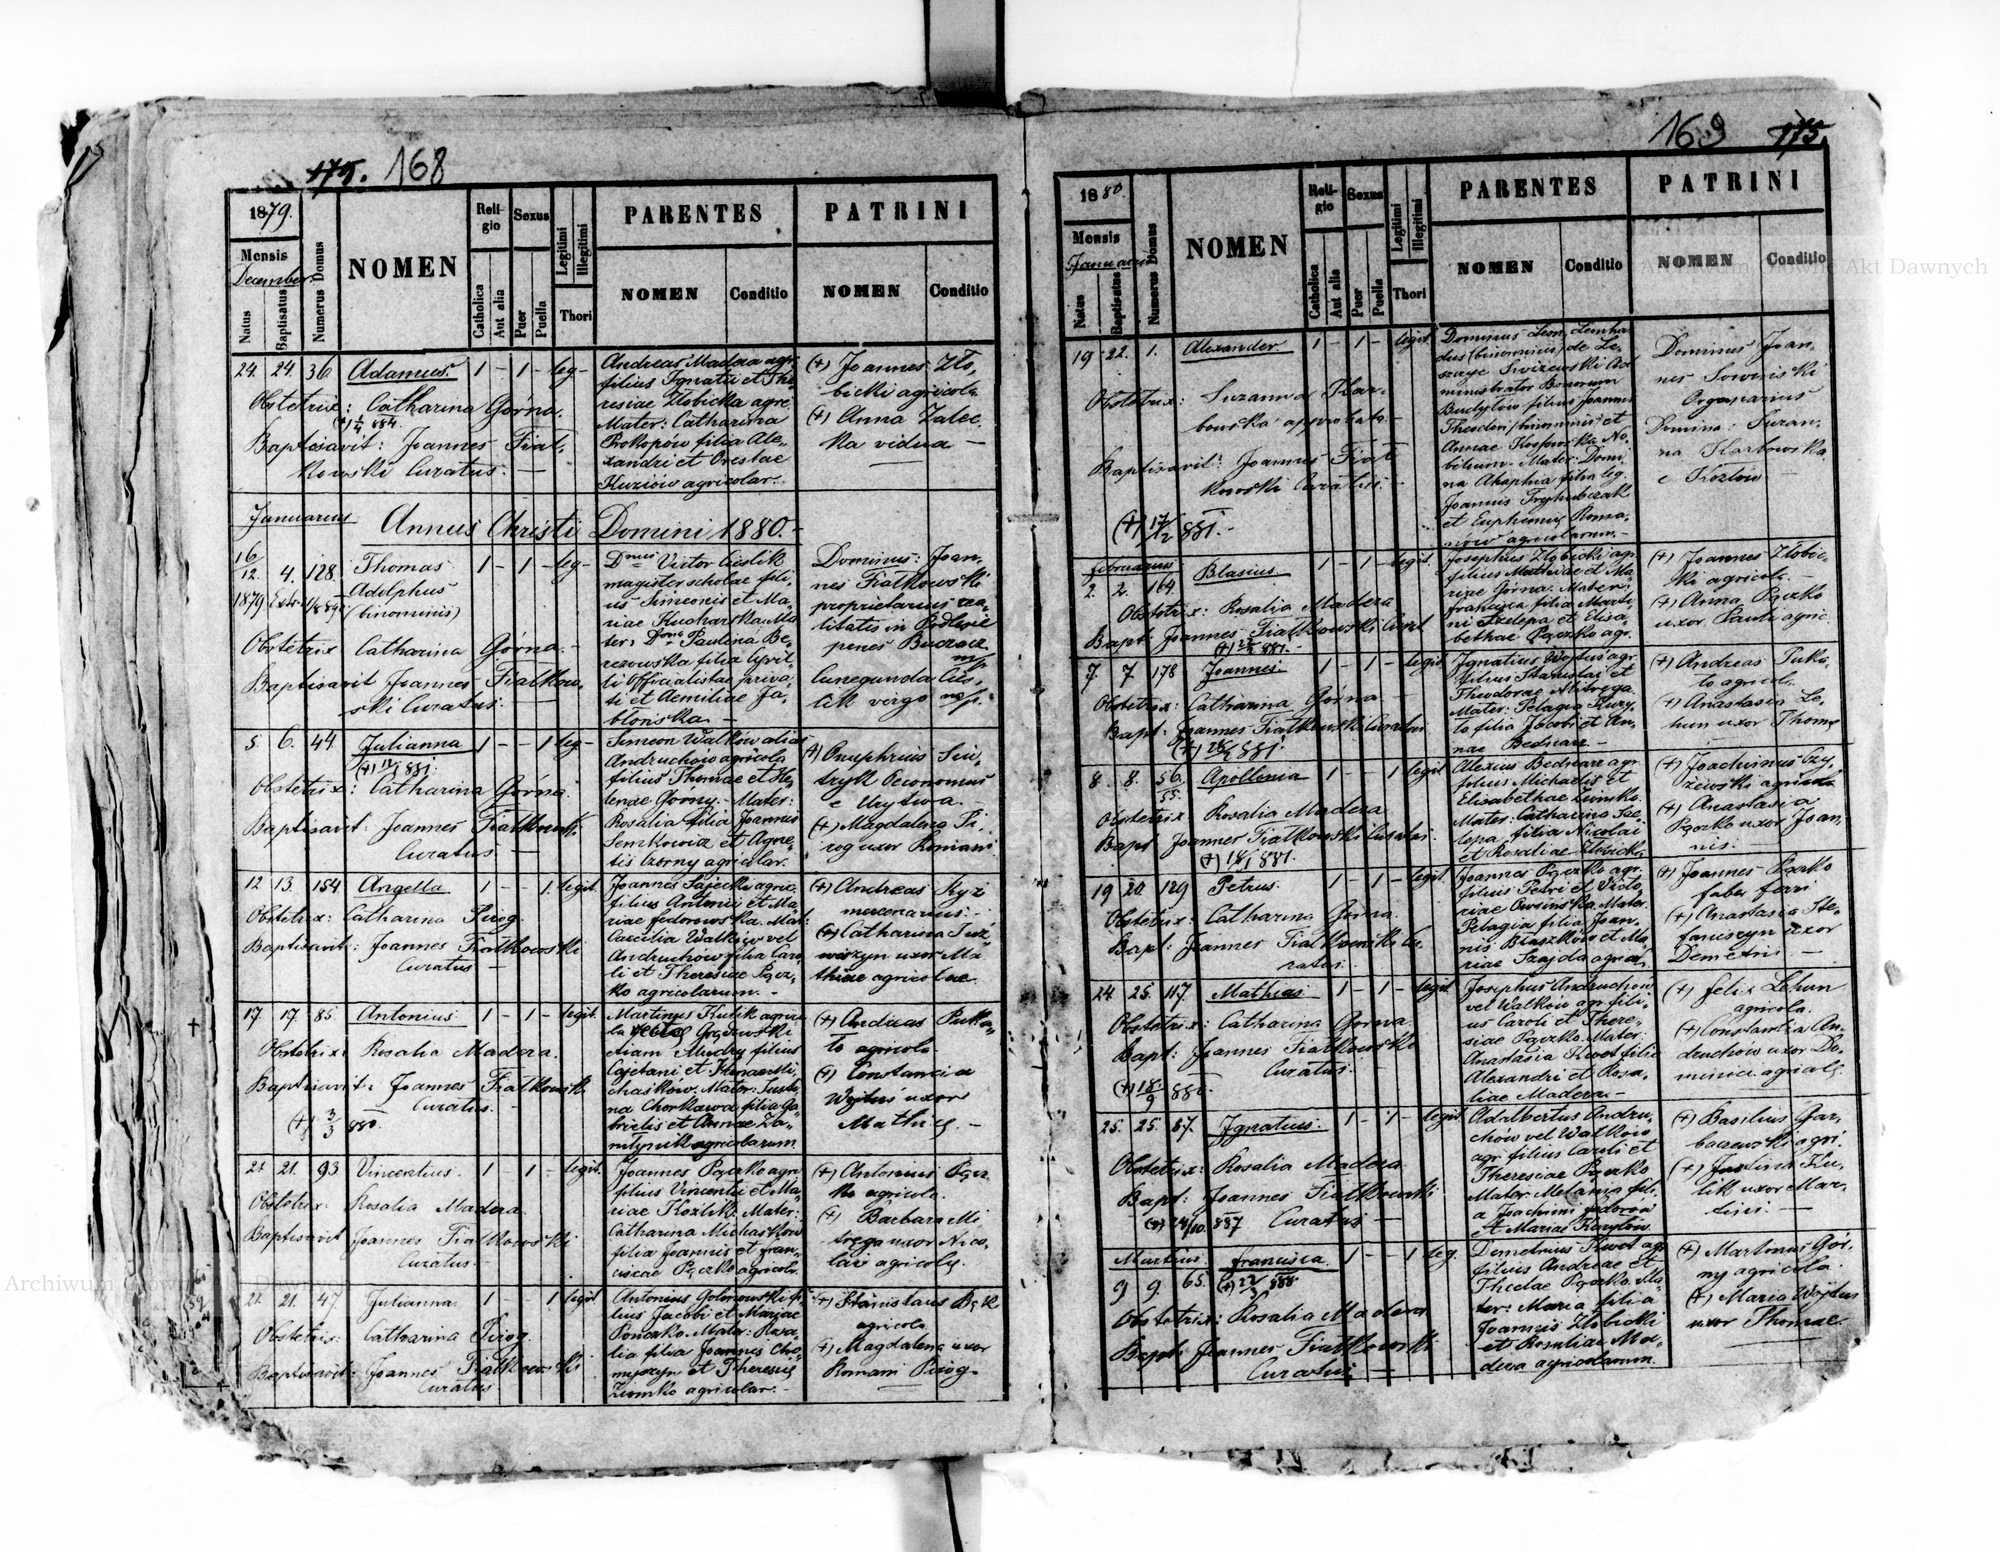 175. 168
1879.
Mensis
December
Natus
Baptisatus
Numerus Domus
NOMEN
Religio
Catholica
Aut alia
Sexus
Puer
Puella
Legitimi
Illegitimi
Thori
PARENTES
NOMEN
Conditio
PATRINI
NOMEN
Conditio
24. 24. 36 Adamus. 1 - 1 - leg-
Obstetrix: Catharina Górna.
(+) 1/4 884.
Baptisavit: Joannes Fiat,
kowski Curatus. —
Andreas Madera agr.
filius Ignatii et The
resiae Złobicka agr.
Mater: Catharina
Prokopów filia Ale-
xandri et Orestae
Kuziów agricolar.
(+) Joannes Zło,
bicki agricola
(+) Anna Zalec
ka vidua —
Januarius Annus Christi Domini 1880.-
16/12. 1879 4. 128. Thomas 1 - 1 - leg-
Adolphus
(binominis)
Obstetrix Catharina Górna. —
Baptisavit Joannes Fiatkow,
ski Curatus. —
Dnus Victor Cieślik
magister scholae fili-
us Simeonis et Ma,
riae Kucharska. Ma
ter: Dna Paulina Be,
rezowska filia Cyril-
li Officialistae priva-
ti et Aemiliae Ja-
błońska —
Dominus: Joan,
nes Fiatkowski
proprietarius rea-
litatis in Podlesie
penes Buczacz
mp
Cunegunda Cieś,
lik virgo mp.
5. 6. 44. Julianna 1 - - 1 leg-
Obstetrix: Catharina Górna.
Baptisavit: Joannes Fiatkowski
Curatus —
Simeon Walków alias
Andruchow agricola
filius Thomae et He,
lenae Górny - Mater:
Rosalia filia Joannis
Semkowicz et Agne-
tis Czorny agricolar.
(+) Onuphrius Siu,
tryk Oeconomus
e Urytwa.
(+) Magdalena Pi,
rog uxor Romani
12 13. 154 Angella 1 - - 1. legit.
Obstetrix: Catharina Pirog.
Baptisavit: Joannes Fiatkowski
Curatus —
Joannes Sajecki agric.
filius Antonii et Ma
riae Fedorowska. Mat:
Caecilia Walków vel
Andruchow filia Caro-
li et Theresiae Pącz-
ko agricolarum. -
(+) Andreas Kyz
mercenarius -
(+) Catharina
uxor Ma
thiae agricolae
17. 17. 85. Antonius 1 - 1 - legit.
Obstetrix: Rosalia Madera.
Baptisavit: Joannes Fiatkowski
Curatus. -
(+) 3/3 880.
Martinus Kulik agrico
la
etiam Mudry filius
Cajetani et
chasków. Mater: Justi
na Chorkawa filia Ga-
brielis et Annae
agricolarum
(+) Andreas Puka-
to agricola -
(+) Constancia
Wojtus uxor
Mathię. -
21. 21. 93 Vincentius. 1 - 1 - legit.
Obstetrix: Rosalia Madera.
Baptisavit Joannes Fiatkowski
Curatus -
Joannes Pączko agri
filius Vincentii et Ma-
riae Kozlik. Mater:
Catharina Michasków
filia Joannis et fran-
ciscae Pączko agricolr.
(+) Antonius Pącz
ko agricola.
(+) Barbara Mi,
trega uxor Nico,
lai agricolę.
21. 21. 47. Julianna. 1 - - 1 legit
Obstetrix: Catharina Pirog.
Baptisavit: Joannes Fiatkowski
Curatus
Antonius Golonowski fi-
lius Jacobi et Mariae
Ponczko. Mater: Rosa-
lia filia Joannes Chro-
et Theresię
Ziomko agricolar. -
(+) Stanislaus Bąk
agricola
(+) Magdalena uxor
Romani Pirog.
169 175.
1880.
Mensis
Januarius
Natus
Baptisatus
Numerus Domus
NOMEN
Religio
Catholica
Aut alia
Sexus
Puer
Puella
Legitimi
Illegitimi
Thori
PARENTES
NOMEN
Conditio
PATRINI
NOMEN
Conditio
19 22. 1. Alexander. 1 - 1 - legit.
Obstetrix: Suzanna Kar-
bowska approbata. -
Baptisavit: Joannes Fiat
kowski Curatus. -
(+) 17/2 881. -
Dominus Leon, Leonha
dus (binominus) de Le-
szaje Siwizewski Ad
ministrator Bonorum
Budyłow filius Joannis
Theodori binominis et
Annae No-
bilium. Mater: Domi
na Ahaphia filia leg.
Joannis Tryhubczak
et Euphemię Roma,
now agricolarum. -
Dominus Joan.
nes Sowiński
Organarius
Domina: Suzan-
na Karbowska.
e Kozłow
februarius
2. 2. 164. Blasius 1 - 1 - legit.
Obstetrix: Rosalia Madera
Bapt: Joannes Fiatkowski Curat
Josephus Złobicki agr.
filius Mathiae et Ma-
riae Górna. Mater:
francisca filia Marti-
ni Szelepa et Elisa-
bethae Pączko agr.
(+) Joannes Złobic-
ki agricola. -
(+) Anna Pączko
uxor Pauli agric.
7. 7. 178 Joannes. 1 - 1 - legit
Obstetrix: Catharina Górna -
Bapt: Joannes Fiatkowski Curatus
Ignatius Wojtus agr.
filius Stanislai et
Theodorae Mitręga.
Mater: Pelagia Kury,
to filia Jacobi et An-
nae Bednarz -
(+) Andreas Puka,
to agricola.
(+) Anastasia Le-
hun uxor Thomę
8. 8. 56. 55. Apollonia 1 - - 1 legit
Obstetrix Rosalia Madera
Bapt Joannes Fiatkowski Curatus.
(+) 18/1 881.
Alexius Bednarz agr.
filius Michaelis et
Elisabethae Ziomko.
Mater: Catharina Sze-
lepa filia Nicolai
et Rosaliae Złobicki
(+) Joachimus Czy,
żewski agricola
(+) Anastasia
Pączko uxor Joan,
nis.
19 20. 129 Petrus. 1 - 1 - legit.
Obstetrix: Catharina Górna.
Bapt: Joannes Fiatkowski Cu-
ratus. -
Joannes Pączko agr.
filius Petri et Victo-
riae Owsińska. Mater.
Pelagia filia Joan-
nis Błaszków et Ma-
riae Szajda agricol.
(+) Joannes Pączko
faber ferri
(+) Anastasia Ste-
faniszyn uxor
Demetrii —
24. 25. 117. Mathias 1 - 1 - legit
Obstetrix: Catharina Górna
Bapt: Joannes Fiatkowski
Curatus. -
(+) 18/9 880.
Josephus Andruchow
vel Walków agr. fili-
us Caroli et There-
siae Pączko. Mater:
Anastasia Kwet filia
Alexandri et Rosa-
liae Madera -
(+) Felix Lehun
agricola.
(+) Constantia An-
druchów uxor Do-
minici agricolę.
25. 25. 67. Ignatius. 1 - 1 - legit
Obstetrix: Rosalia Madera.
Bapt: Joannes Fiatkowski
(+) 24/10. 887. Curatus —
Adalbertus Andru-
chów vel Walków
agr. filius Caroli et
Theresiae Pączko
Mater: Melania fili-
a Joachimi Fedorow
et Mariae Kurylów
(+) Basilius Gar-
baczewski agri.
(+) Justina Ku-
lik uxor Mar-
tini. —
Martius francisca. 1 - - 1 leg.
9 9. 65.
Obstetrix: Rosalia Madera
Bapt: Joannes Fiatkowski
Curatus. —
Demetrius Kwet agr
filius Andreae et
Theclae Pączko. Ma-
ter: Maria filia
Joannis Złobicki
et Rosaliae Ma-
dera agricolarum.
(+) Martinus Gór-
ny agricola.
(+) Maria Wojtus
uxor Thomae.
Archiwum Główne Akt Dawnych
Archiwum Główne Akt Dawnych